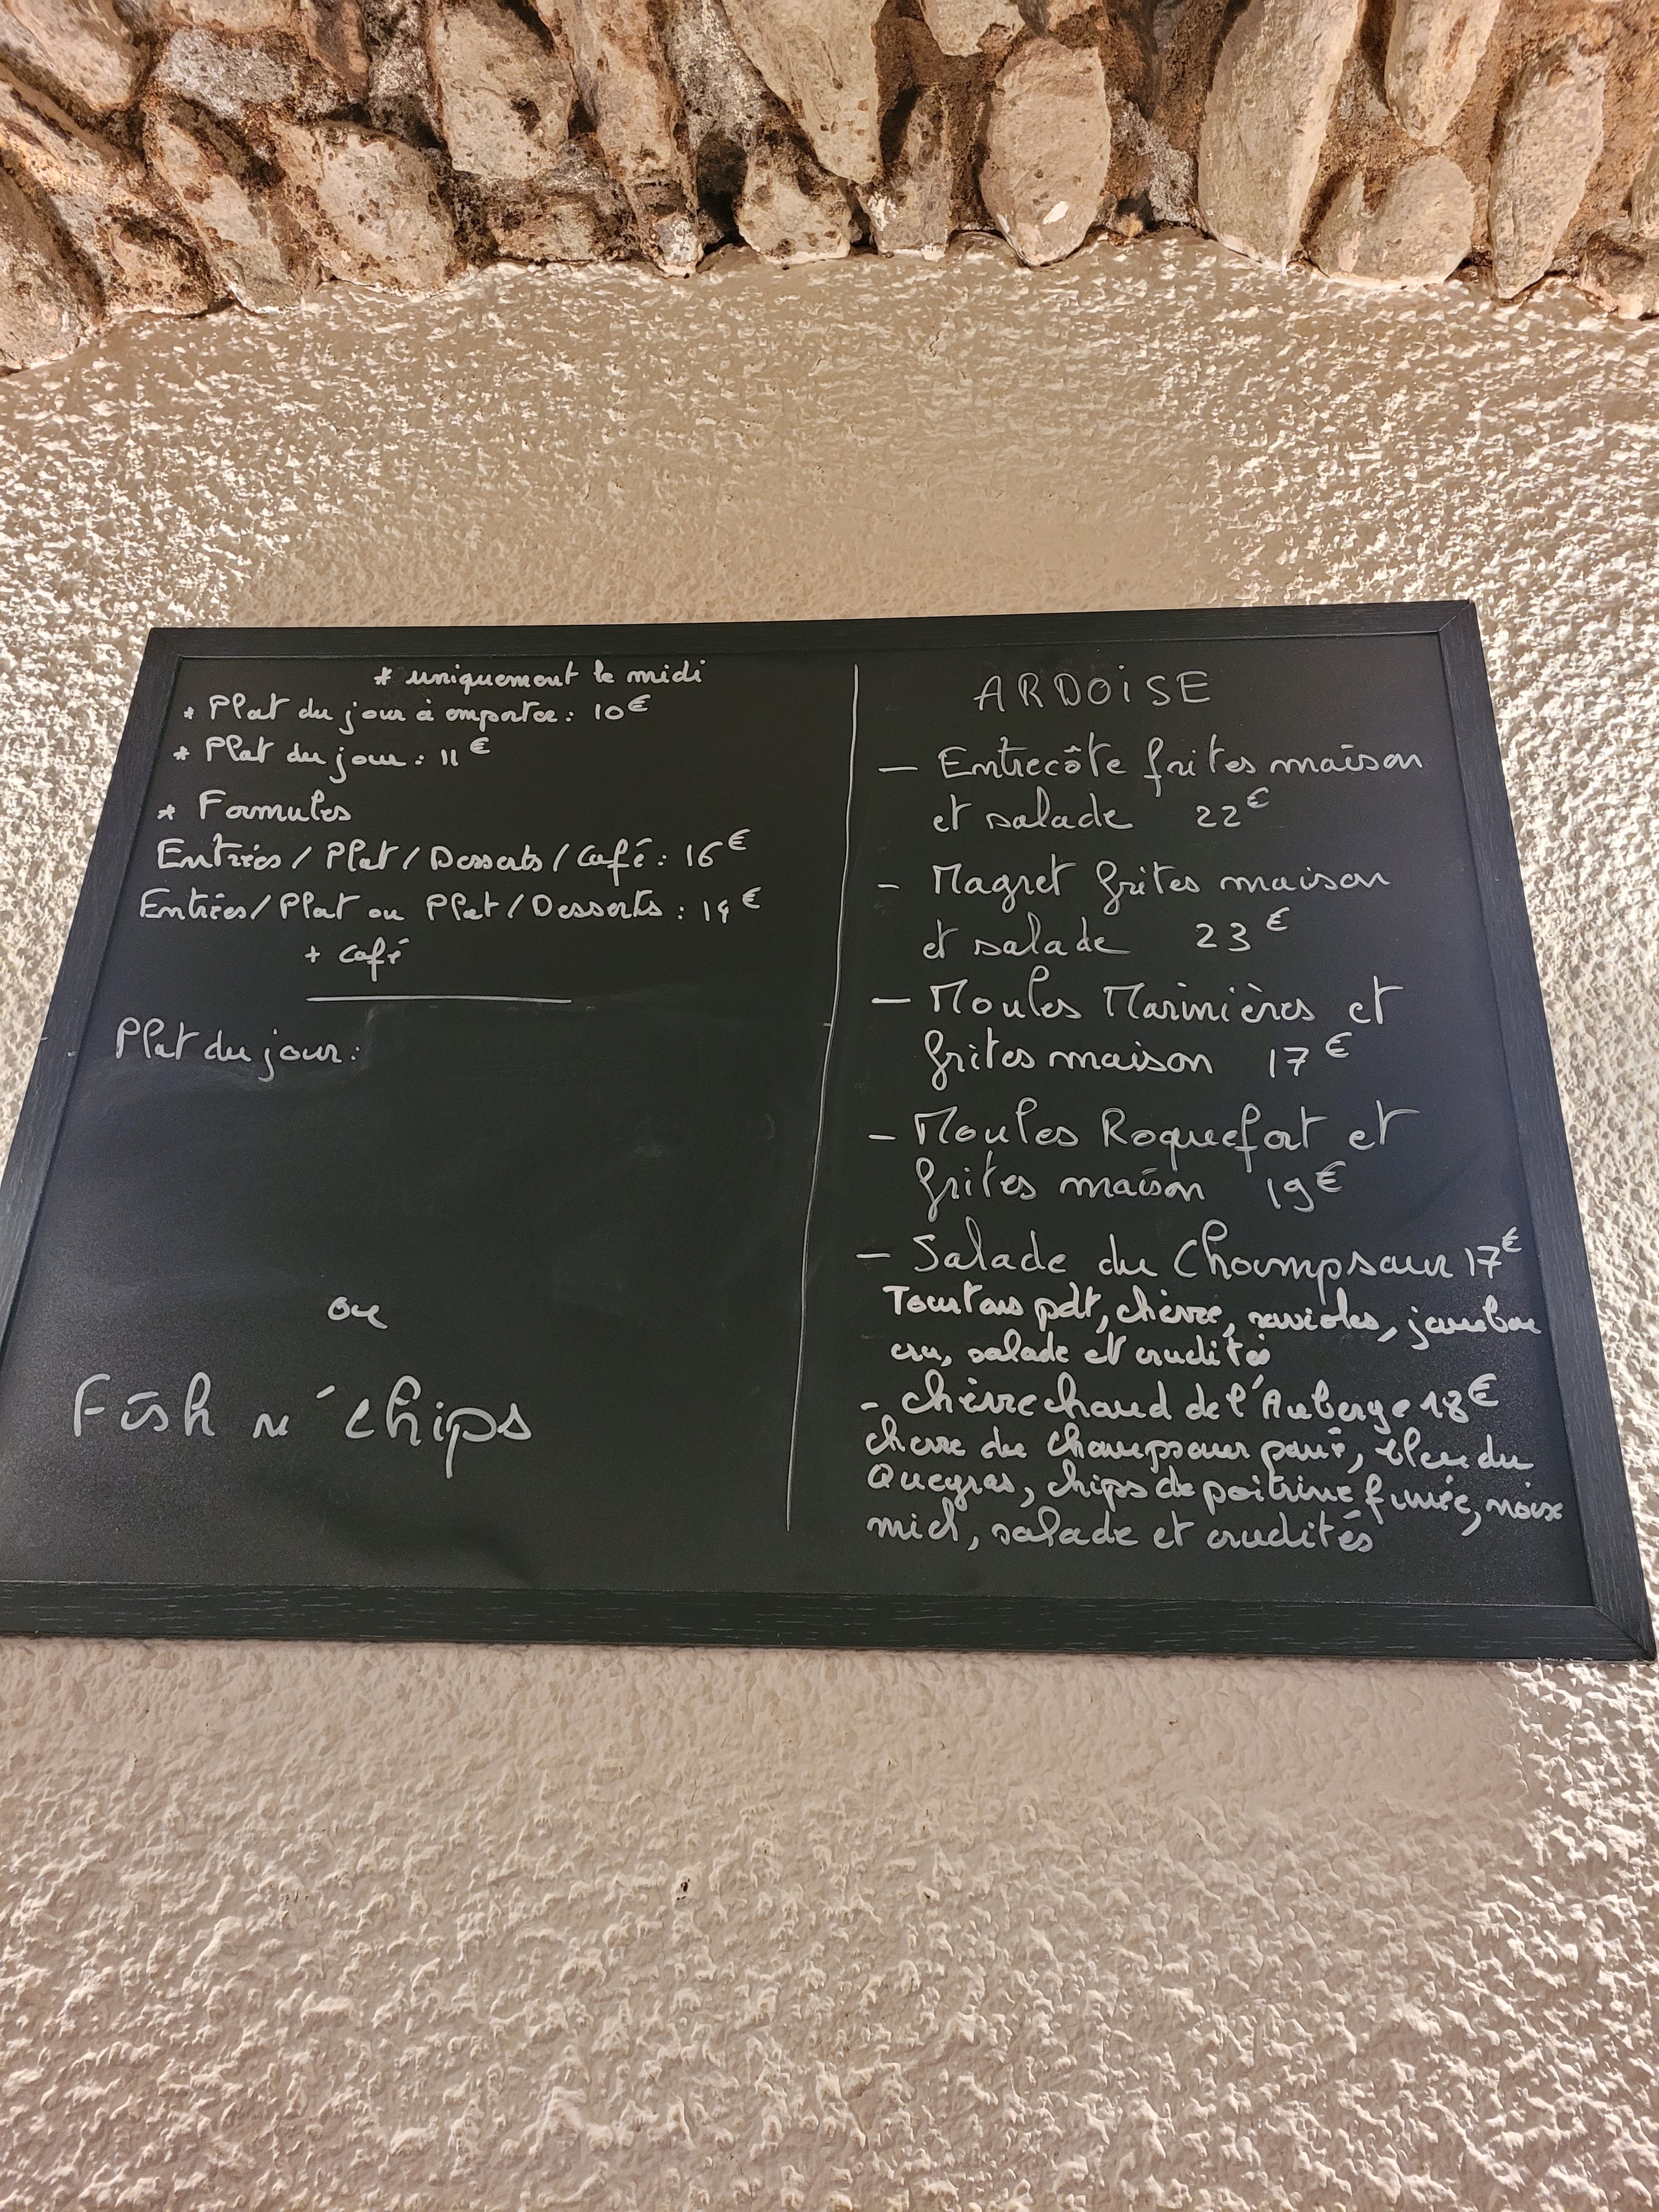 * uniquement le midi
* Plat du jour à emporter : 10€
* Plat du jour : 11€
* Formules
Entrées / Plat / Desserts / Café : 16€
Entrées / Plat ou Plat / Desserts : 14€
+ Café
Plat du jour :
ou
Fish n' chips
ARDOISE
— Entrecôte frites maison
et salade 22€
- Magret frites maison
et salade 23€
— Moules Marinières et
frites maison 17€
- Moules Roquefort et
frites maison 19€
— Salade du Champsaur 17€
Tourtons pdt, chèvre, ravioles, jambon
cru, salade et crudités
- chèvre chaud de l'Auberge 18€
chèvre du champsaur pané, bleu du
Queyras, chips de poitrine fumée, noix
miel, salade et crudités